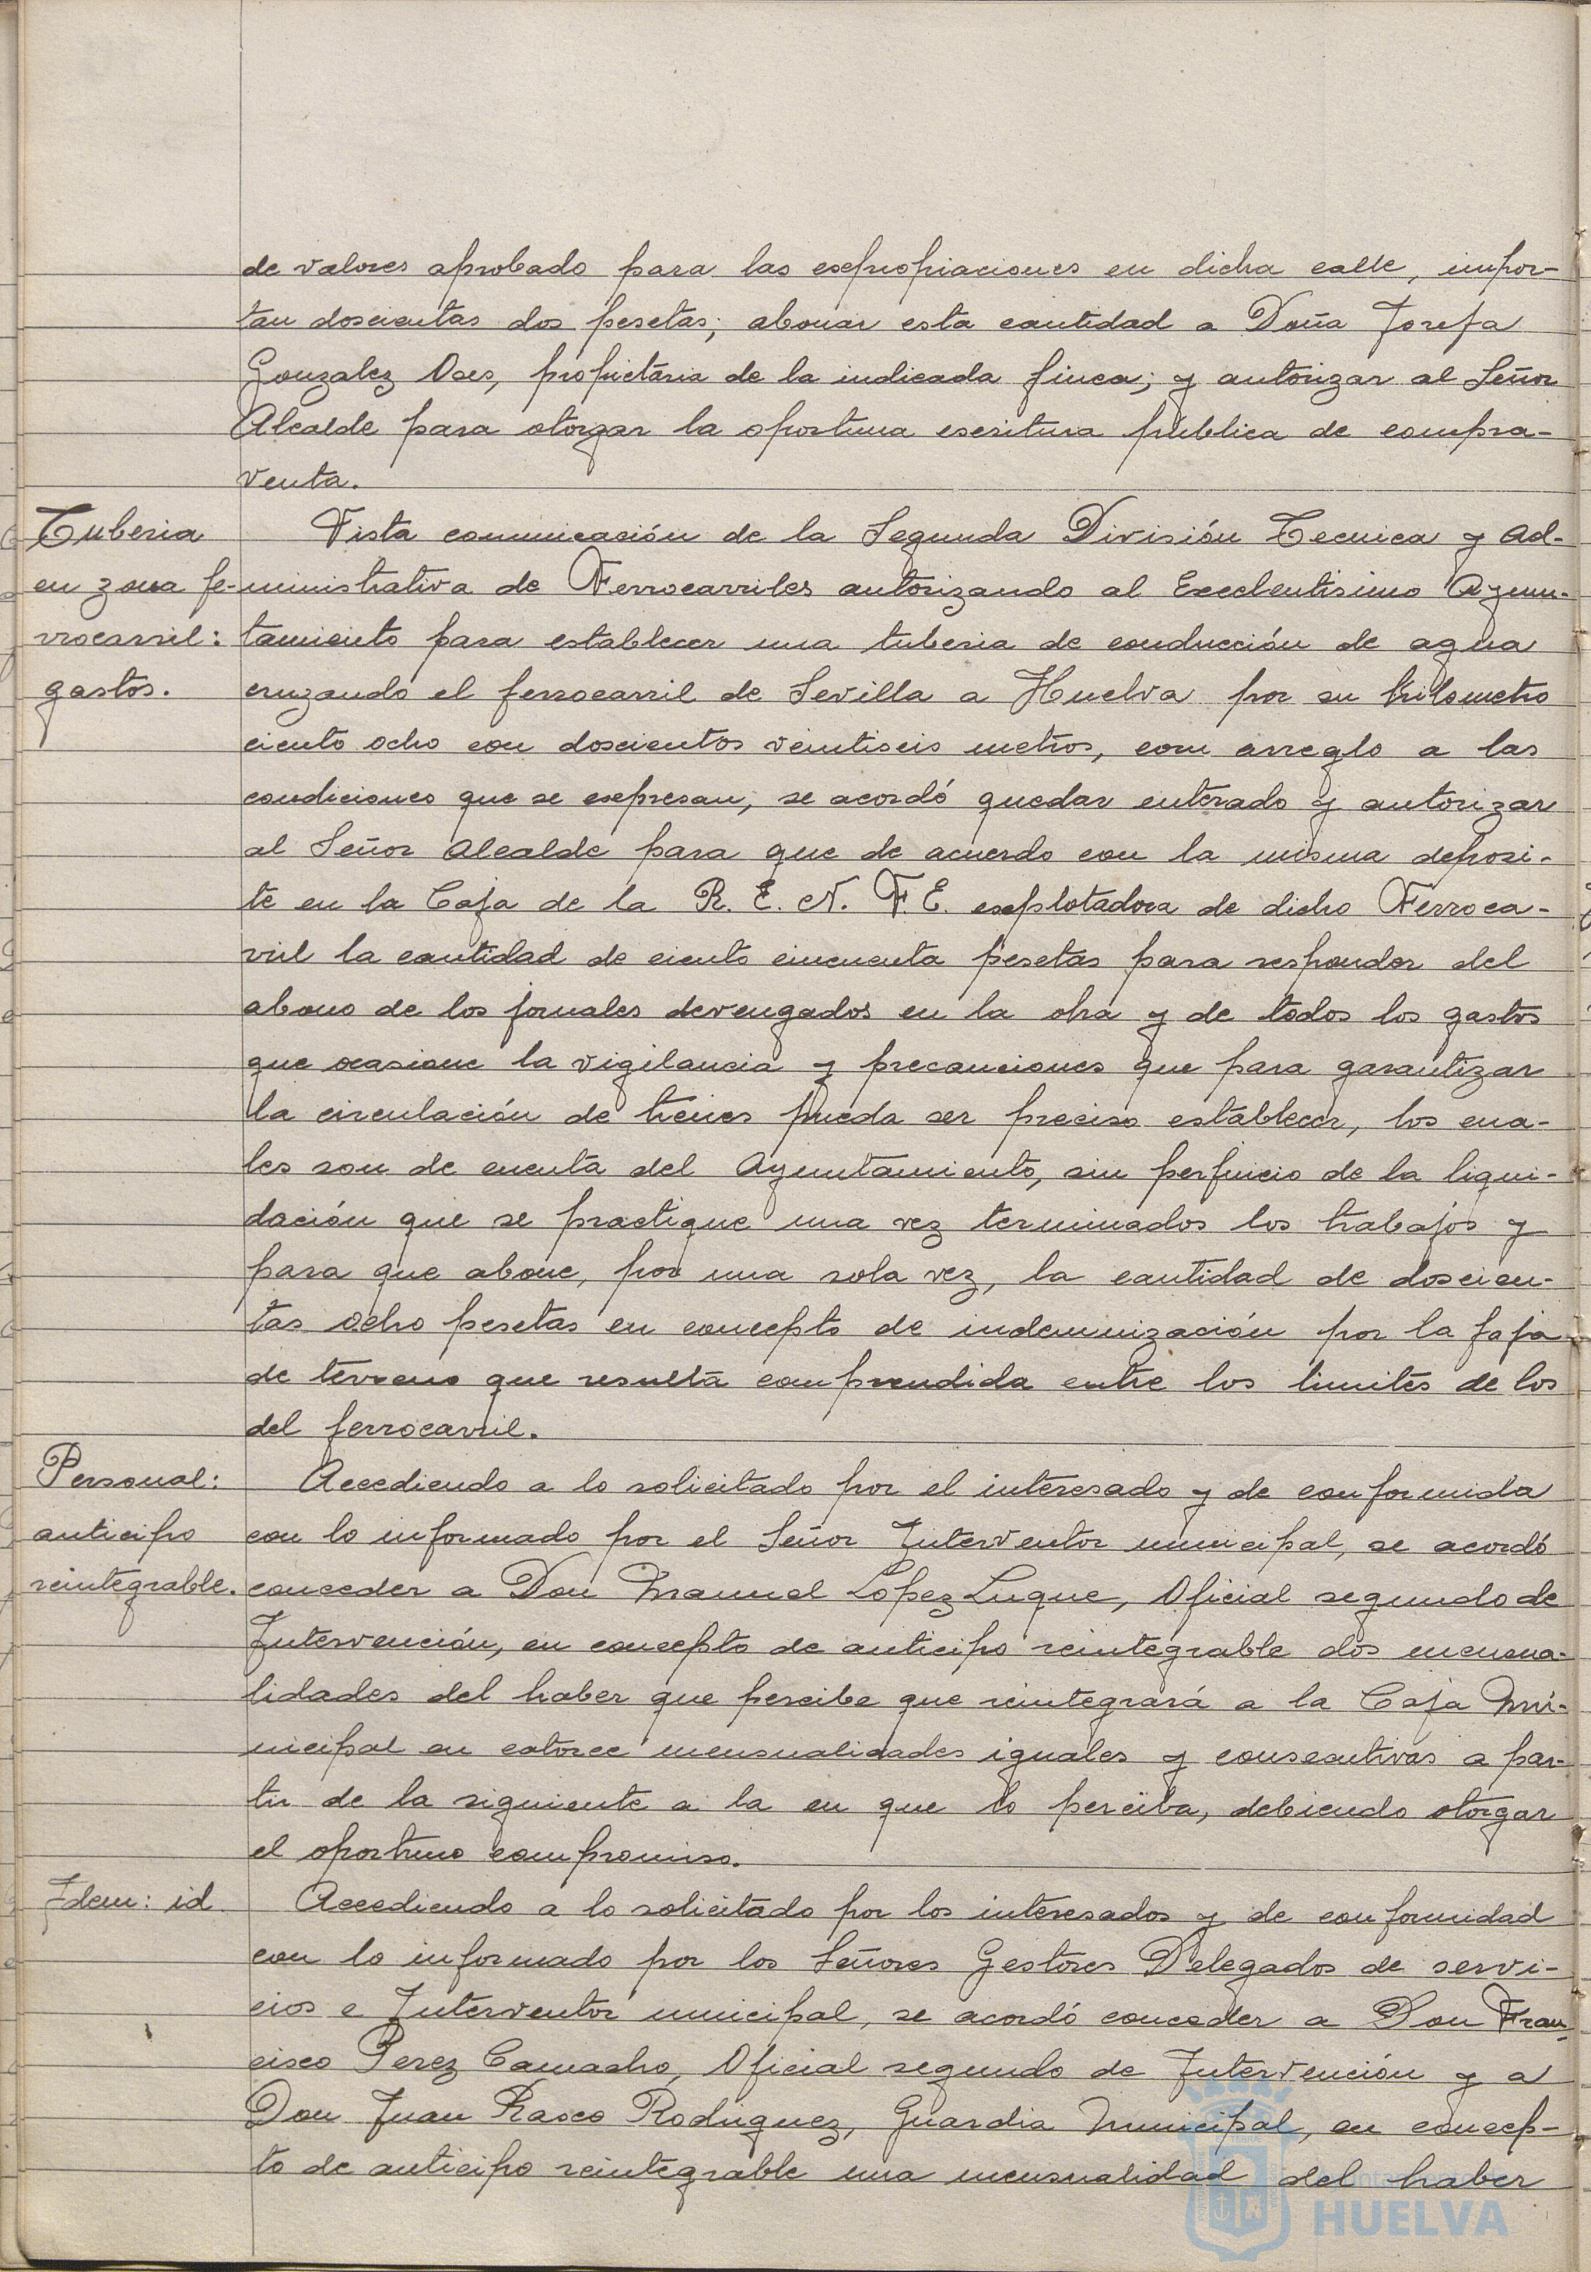 de valores aprobado para las expropiaciones en dicha calle, impor-
tan doscientas dos pesetas; abonar esta cantidad a Doña Josefa
Gonzalez Oses, propietaria de la indicada finca; y autorizar al Señor
Alcalde para otorgar la oportuna escritura pública de compra-
venta.
Tuberia
en zona fe-
rrocarril:
gastos.
Vista comunicación de la Segunda División Tecnica y Ad-
ministrativa de Ferrocarriles autorizando al Excelentisimo Ayun-
tamiento para establecer una tuberia de conducción de agua
cruzando el ferrocarril de Sevilla a Huelva por su kilometro
ciento ocho con doscientos veintiseis metros, com arreglo a las
condiciones que se expresan, se acordó quedar enterado y autorizar
al Señor Alcalde para que de acuerdo con la misma deposi-
te en la Caja de la R. E. N. F. E. explotadora de dicho Ferroca-
rril la cantidad de ciento cincuenta pesetas para responder del
abono de los jornales devengados en la obra y de todos los gastos
que ocasione la vigilancia y precauciones que para garantizar
la circulación de trenes pueda ser preciso establecer, los cua-
les son de cuenta del Ayuntamiento, sin perjuicio de la liqui-
dación que se practique una vez terminados los trabajos y
para que abone, por una sola vez, la cantidad de doscien-
tas ocho pesetas en concepto de indemnización por la faja
de terreno que resulta comprendida entre los limites de los
del ferrocarril.
Personal:
anticipo
reintegrable.
Accediendo a lo solicitado por el interesado y de conformida
con lo informado por el Señor Interventor municipal, se acordó
conceder a Don Manuel López Luque, Oficial segundo de
Intervención, en concepto de anticipo reintegrable dos mensua-
lidades del haber que percibe que reintegrará a la Caja Mu-
nicipal en catorce mensualidades iguales y consecutivas a par-
tir de la siguiente a la en que lo perciba, debiendo otorgar
el oportuno compromiso.
Idem: id.
Accediendo a lo solicitado por los interesados y de conformidad
con lo informado por los Señores Gestores Delegados de servi-
cios e Interventor municipal, se acordó conceder a Don Fran-
cisco Perez Camacho, Oficial segundo de Intervención y a
Don Juan Rasco Rodriguez, Guardia Municipal, en concep-
to de anticipo reintegrable una mensualidad del haber
HUELVA